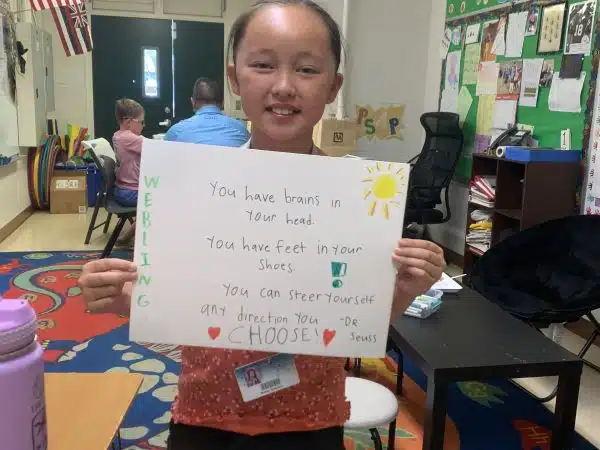 WEBLING
You have brains in
Your head.
You have feet in your
Shoes.
You can steer yourself
any direction you -Dr
CHOOSE! Seuss
PSP